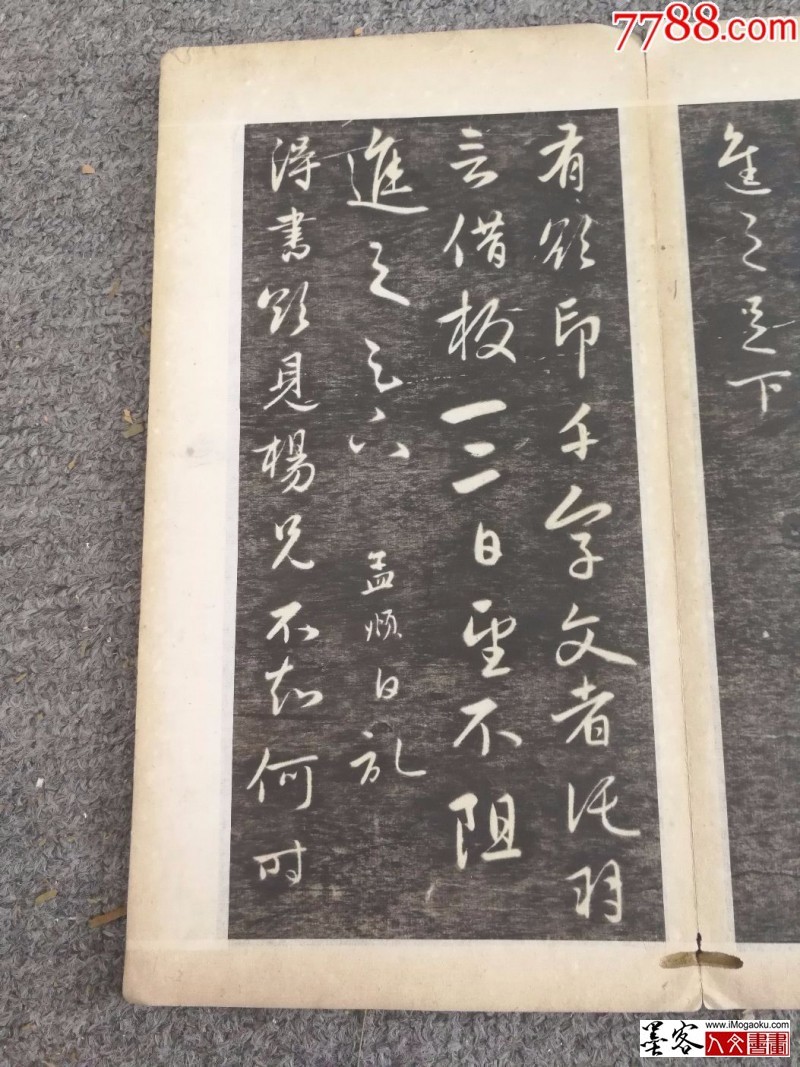 進之足下
有欲印千字文者託羽
言借板一二日望不阻
進之足下 孟頫白
得書欲見楊兄不知何時
7788.com
墨客
www.iMogaoku.com
人文書畫